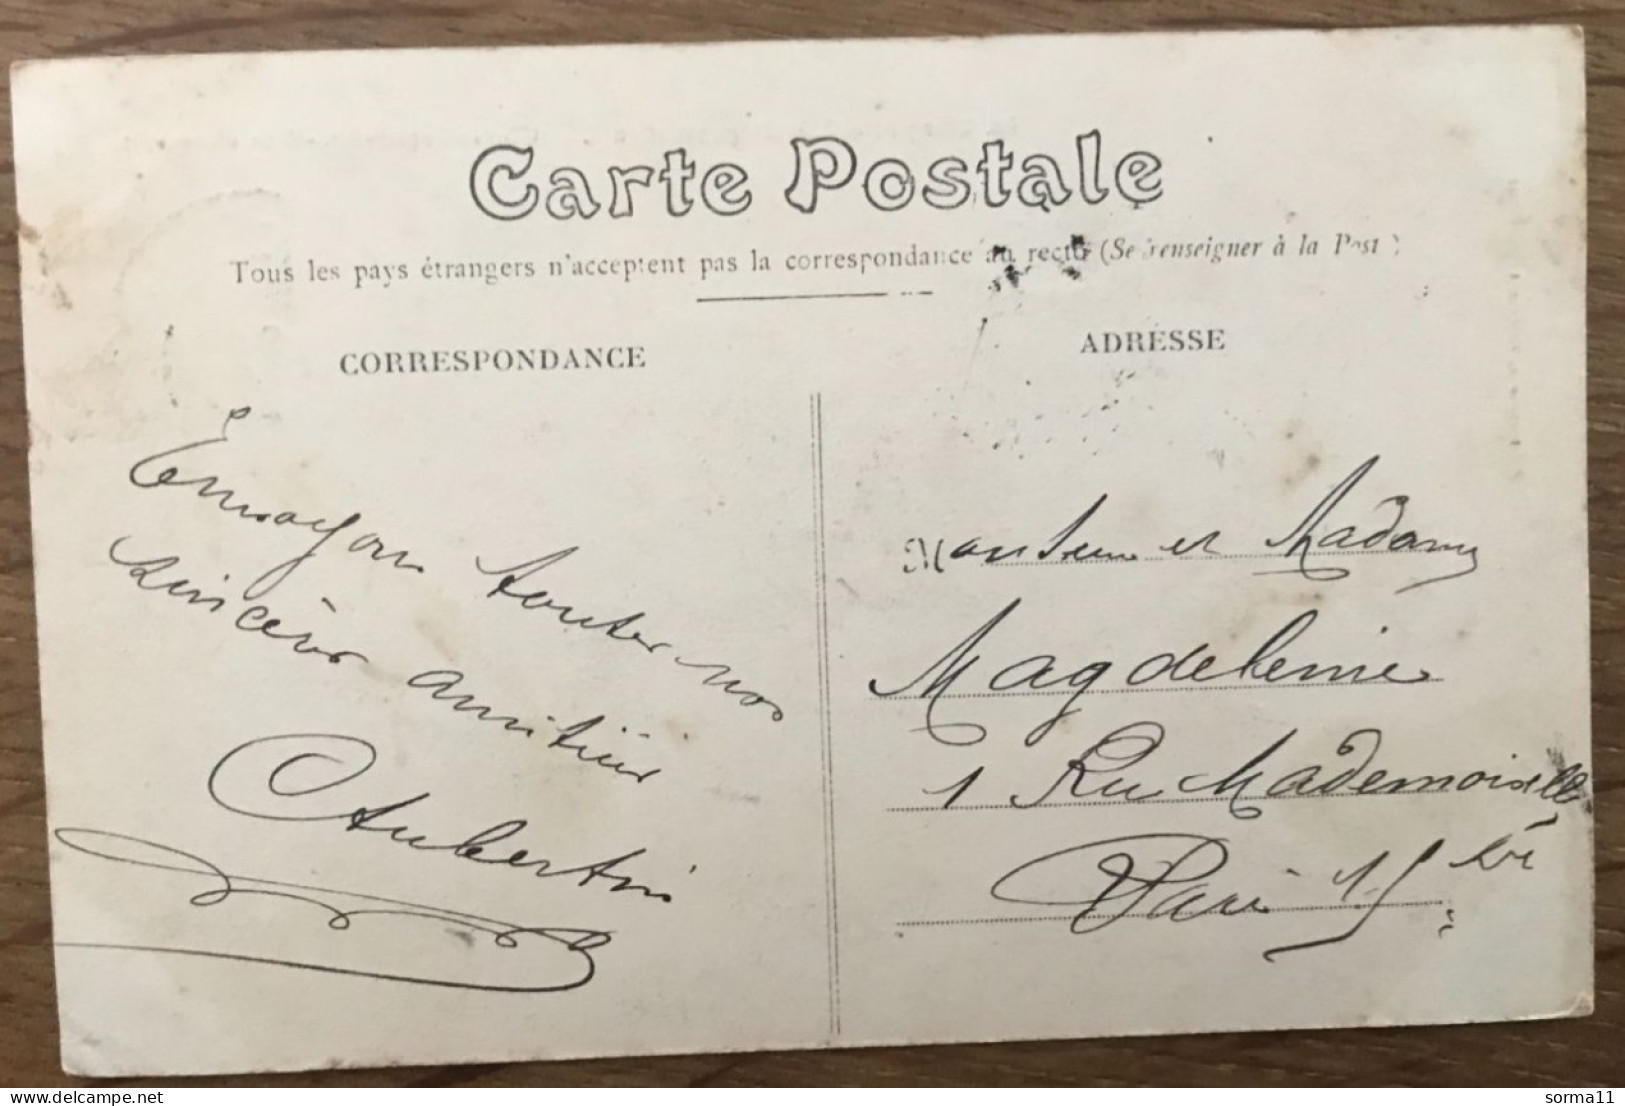 Carte Postale
Tous les pays étrangers n'acceptent pas la correspondance au recto (Se renseigner à la Post )
CORRESPONDANCE
ADRESSE
Envoyon toutes nos
sincères amitiés
Aubertin
Monsieur et Madame
Magdeleine
1 Rue Mademoiselle
Paris 15
delcampe.net
sorma11